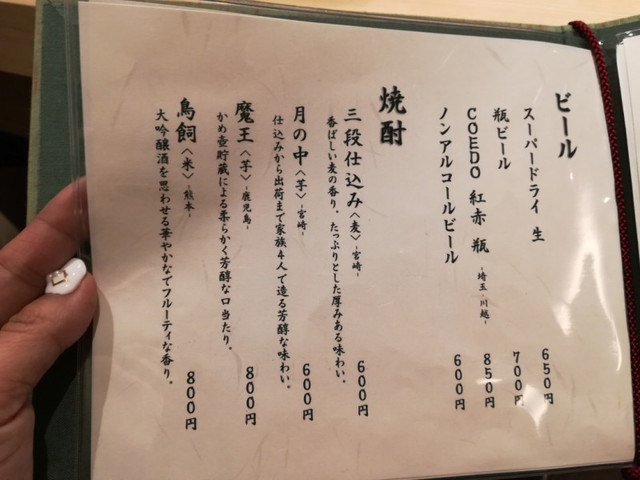 ビール
スーパードライ 生 650円
瓶ビール 700円
COEDO 紅赤 瓶 -埼玉・川越- 850円
ノンアルコールビール 600円
焼酎
三段仕込み〈麦〉-宮崎- 600円
香ばしい麦の香り。たっぷりとした厚みある味わい。
月の中〈芋〉-宮崎- 600円
仕込みから出荷まで家族4人で造る芳醇な味わい。
魔王〈芋〉-鹿児島- 800円
かめ壺貯蔵による柔らかく芳醇な口当たり。
鳥飼〈米〉-熊本- 800円
大吟醸酒を思わせる華やかなでフルーティな香り。